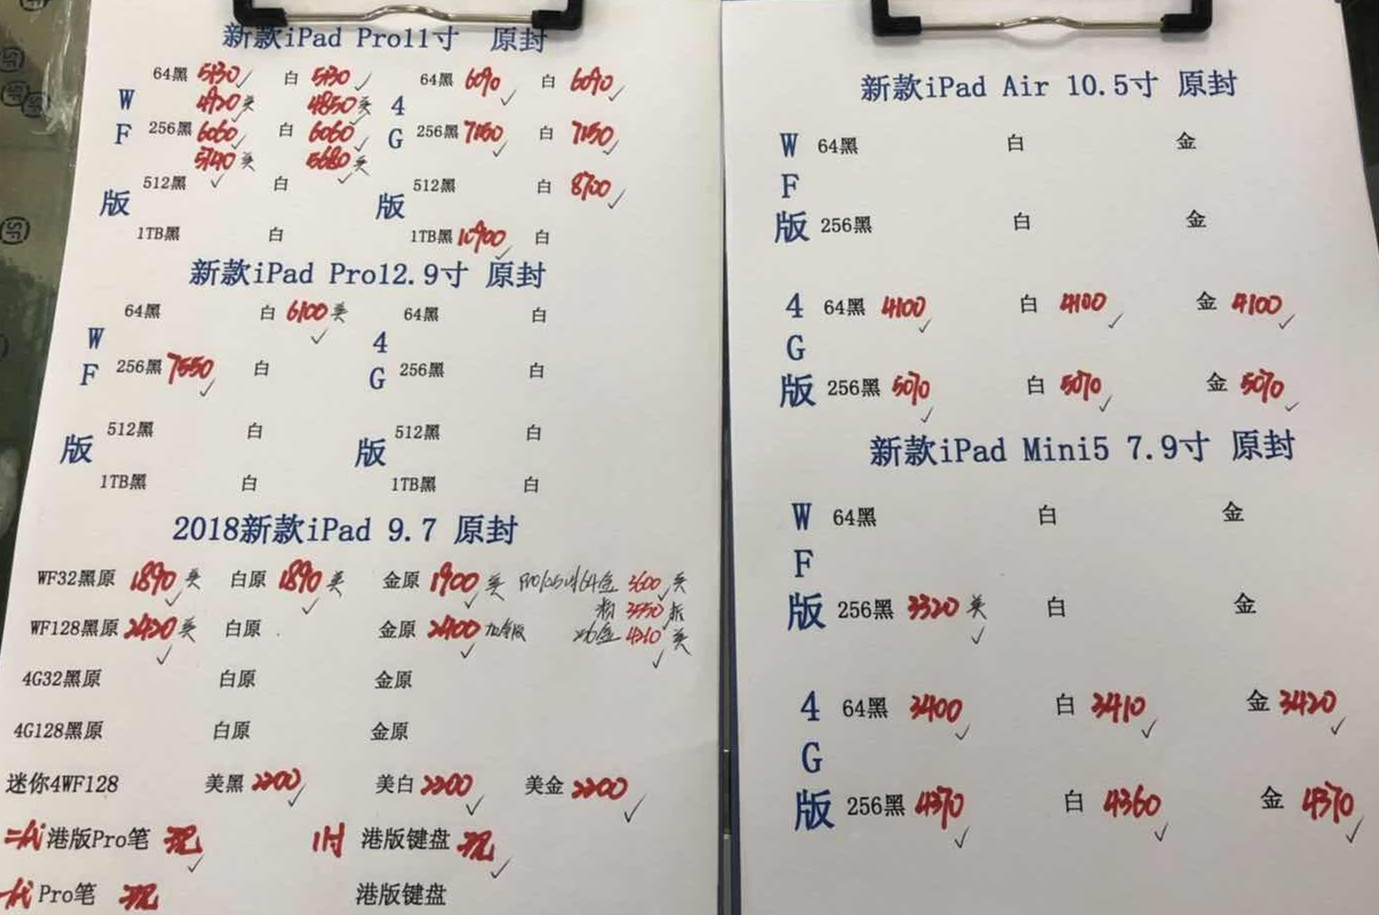 新款iPad Pro11寸 原封
W F 版
64黑 5130 白 5130
4920美 4850美
256黑 6060 白 6060
5740美 5680美
512黑 白
1TB黑 白
4 G 版
64黑 6090 白 6090
256黑 7150 白 7150
512黑 白 8700
1TB黑 10900 白
新款iPad Pro12.9寸 原封
W F 版
64黑 白 6100美
256黑 7550 白
512黑 白
1TB黑 白
4 G 版
64黑 白
256黑 白
512黑 白
1TB黑 白
2018新款iPad 9.7 原封
WF32黑原 1890美 白原 1890美 金原 1900美
3600美
粉 3550
4210美
WF128黑原 2420美 白原 金原 2400
4G32黑原 白原 金原
4G128黑原 白原 金原
迷你4WF128 美黑 2200 美白 2200 美金 2200
二代 港版Pro笔 现 11寸 港版键盘 现
一代 Pro笔 现 港版键盘
新款iPad Air 10.5寸 原封
W F 版
64黑 白 金
256黑 白 金
4 G 版
64黑 4100 白 4100 金 4100
256黑 5070 白 5070 金 5070
新款iPad Mini5 7.9寸 原封
W F 版
64黑 白 金
256黑 3320美 白 金
4 G 版
64黑 3400 白 3410 金 3420
256黑 4370 白 4360 金 4370